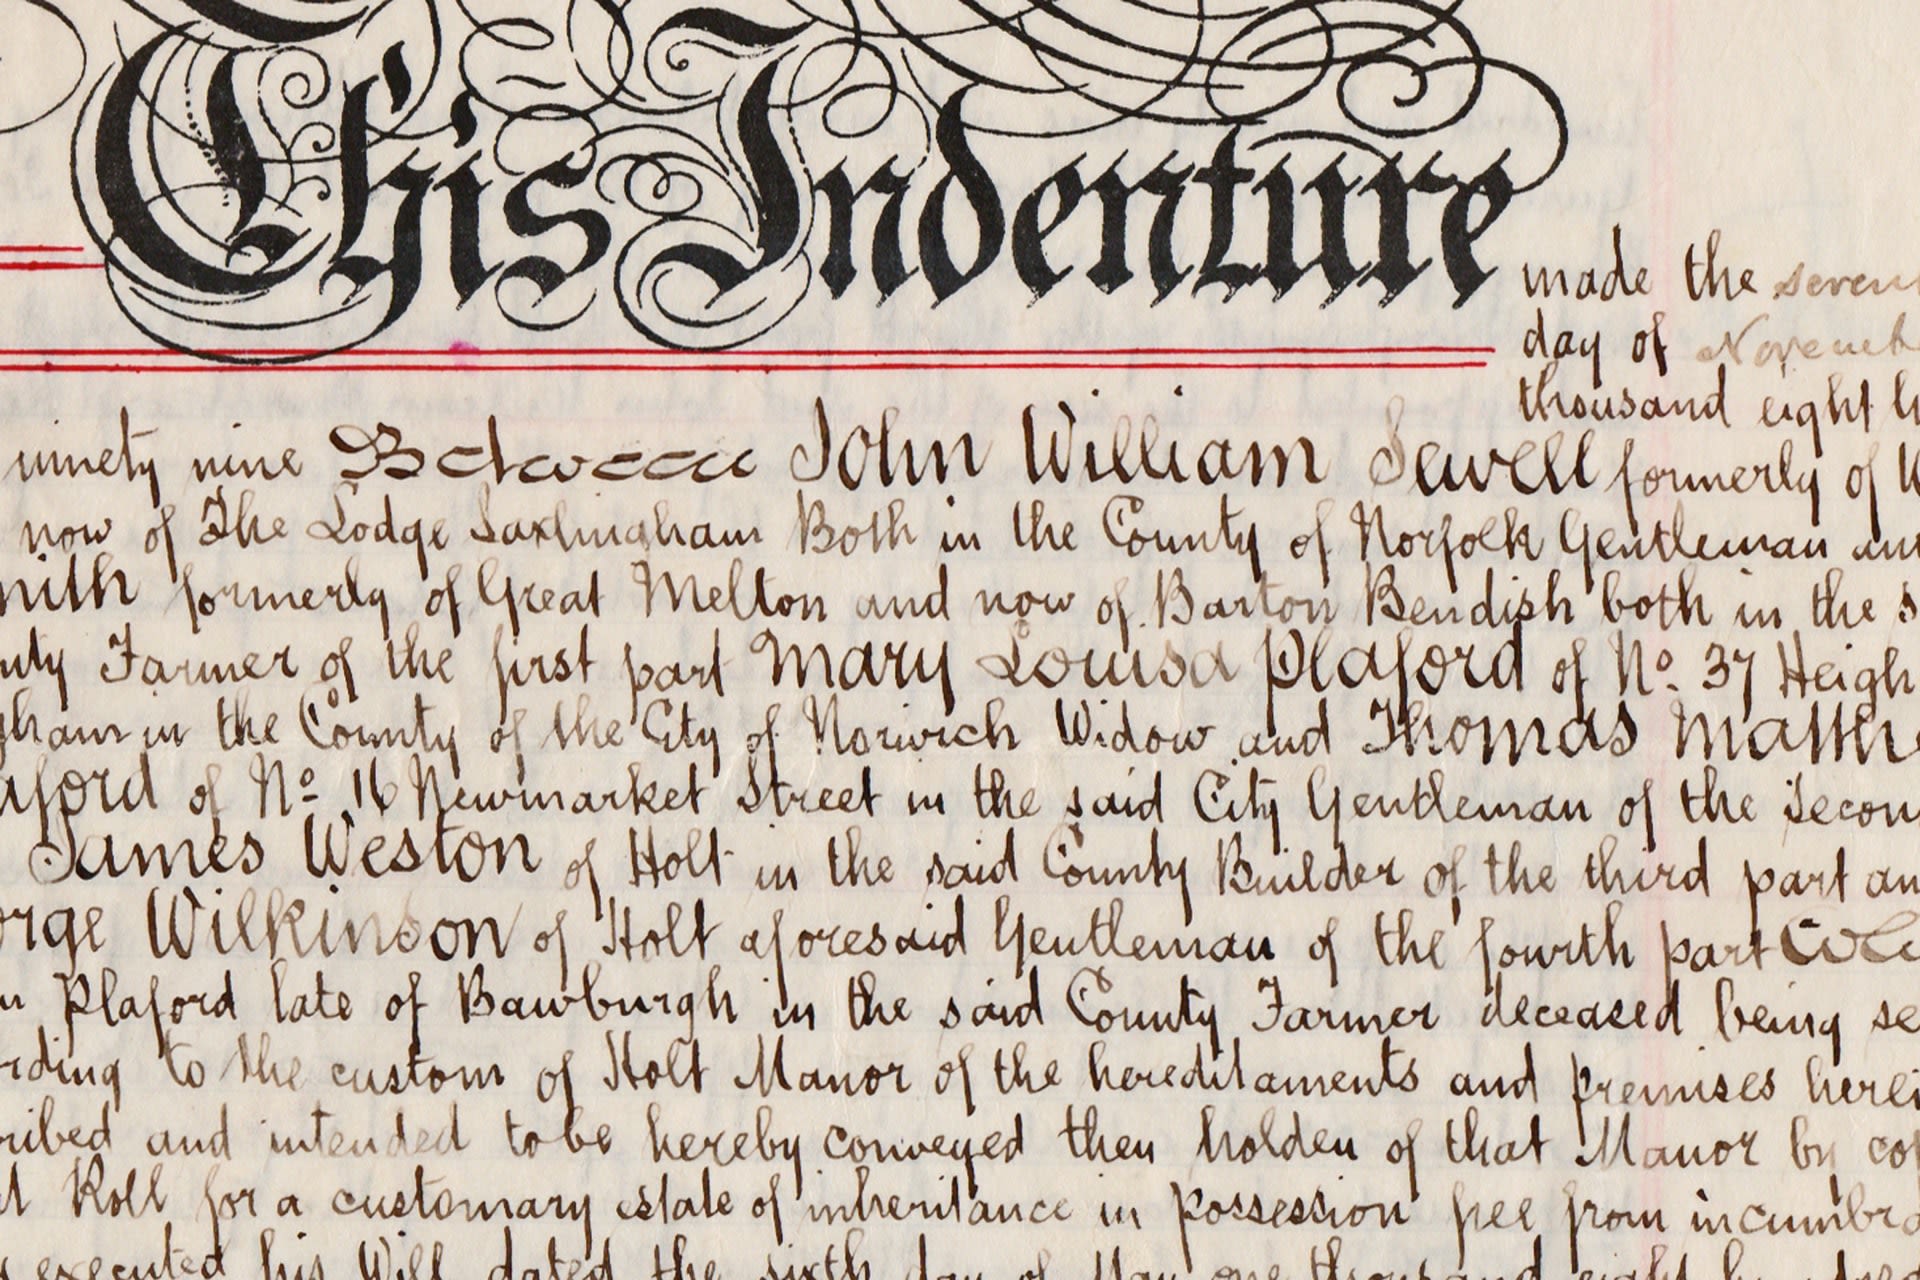 This Indenture
made the
day of
thousand eight
ninety nine Between John William Sewell formerly of
now of The Lodge Saxlingham Both in the County of Norfolk Gentleman
formerly of Great Melton and now of Barton Bendish both in the
Farmer of the first part Mary Louisa Plaford of No. 37 Heigh
in the County of the City of Norwich Widow and Thomas Matthe
of No 16 Newmarket Street in the said City Gentleman of the Secon
James Weston of Holt in the said County Builder of the third part an
orge Wilkinson of Holt aforesaid Gentleman of the fourth part
Plaford late of Bawburgh in the said County Farmer deceased being se
rding to the custom of Holt Manor of the hereditaments and premises herei
ribed and intended to be hereby conveyed then holden of that Manor by cop
Roll for a customary estate of inheritance in possession free from incumbra
executed his Will dated the sixth day of May one thousand eight